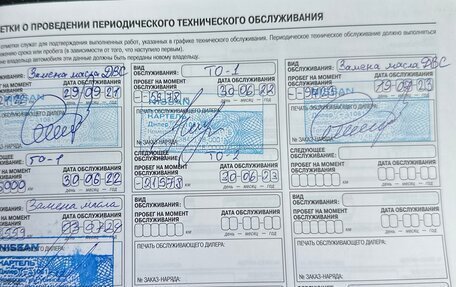 ЕТКИ О ПРОВЕДЕНИИ ПЕРИОДИЧЕСКОГО ТЕХНИЧЕСКОГО ОБСЛУЖИВАНИЯ
отметки служат для подтверждения выполненных работ, указанных в графике технического обслуживания. Периодическое техническое обслуживание должно выполняться
срока или пробега (в зависимости от того, что наступило первым).
владельца автомобиля эти данные должны быть переданы новому владельцу.
Замена масла ДВС
ДАТА ОБСЛУЖИВАНИЯ
29 09 21
день – месяц – год
NISSAN
ОБСЛУЖИВАЮЩЕГО ДИЛЕРА:
ВИД ОБСЛУЖИВАНИЯ: ТО-1
ПРОБЕГ НА МОМЕНТ ОБСЛУЖИВАНИЯ
ДАТА ОБСЛУЖИВАНИЯ
30 06 22
день – месяц – год
КАРТЕЛЬ
№ ЗАКАЗ-НАРЯДА:
ВИД ОБСЛУЖИВАНИЯ: Замена масла ДВС
ПРОБЕГ НА МОМЕНТ ОБСЛУЖИВАНИЯ
ДАТА ОБСЛУЖИВАНИЯ
19 09 23
день – месяц – год
NISSAN
№ ЗАКАЗ-НАРЯДА:
ТО-1
ДАТА ОБСЛУЖИВАНИЯ
30 06 22
день – месяц – год
ОБСЛУЖИВАНИЯ: ТО-2
ПРОБЕГ НА МОМЕНТ ОБСЛУЖИВАНИЯ
ДАТА ОБСЛУЖИВАНИЯ
30 06 23
день – месяц – год
СЛЕДУЮЩЕЕ ОБСЛУЖИВАНИЕ:
ПРОБЕГ НА МОМЕНТ ОБСЛУЖИВАНИЯ
ДАТА ОБСЛУЖИВАНИЯ
день – месяц – год
Замена масла
ДАТА ОБСЛУЖИВАНИЯ
день – месяц – год
NISSAN
КАРТЕЛЬ
ВИД ОБСЛУЖИВАНИЯ:
ПРОБЕГ НА МОМЕНТ ОБСЛУЖИВАНИЯ
ДАТА ОБСЛУЖИВАНИЯ
день – месяц – год
ПЕЧАТЬ ОБСЛУЖИВАЮЩЕГО ДИЛЕРА:
№ ЗАКАЗ-НАРЯДА:
ВИД ОБСЛУЖИВАНИЯ:
ПРОБЕГ НА МОМЕНТ ОБСЛУЖИВАНИЯ
ДАТА ОБСЛУЖИВАНИЯ
день – месяц – год
ПЕЧАТЬ ОБСЛУЖИВАЮЩЕГО ДИЛЕРА:
№ ЗАКАЗ-НАРЯДА: